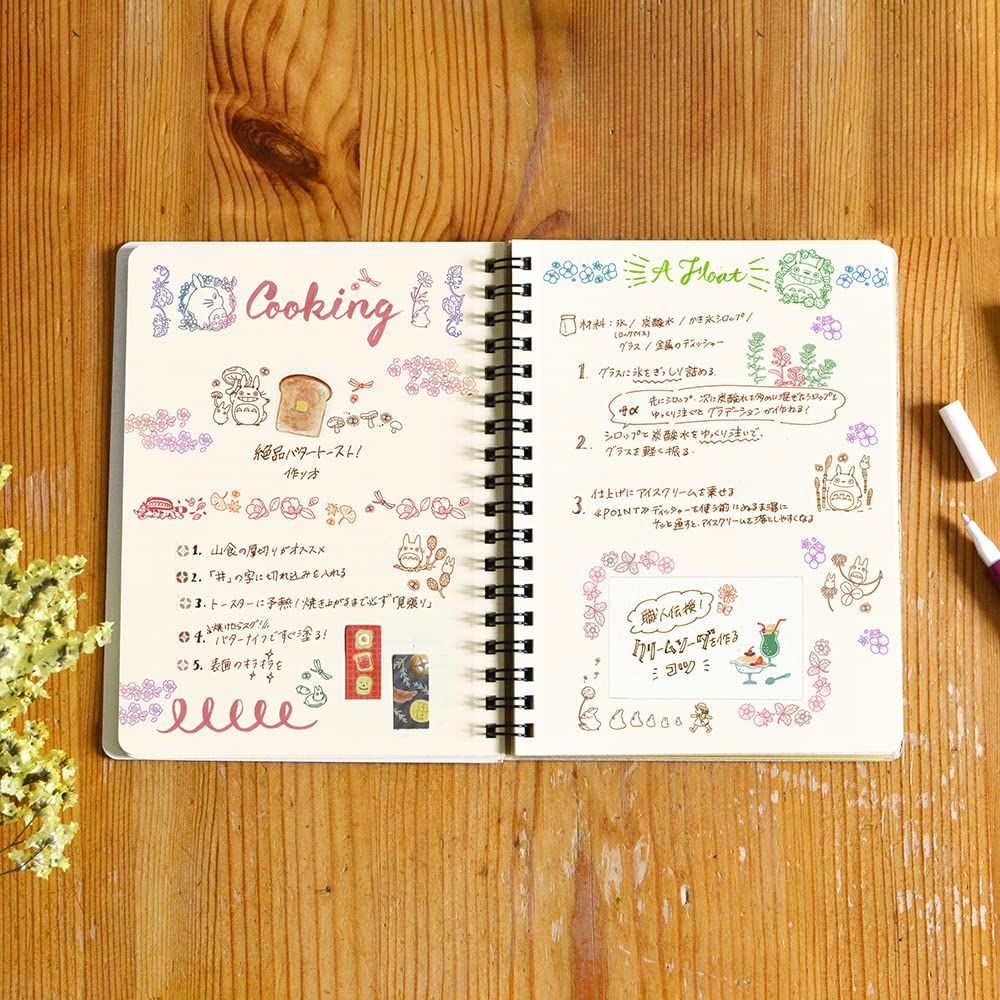 Cooking
絶品バタートースト!
作り方
1. 山食の厚切りがオススメ
2. 「井」の字に切れ込みを入れる
3. トースターに予熱!焼き上がるまで必ず「見張り」
焼けたらスグ!!
4. バターナイフですぐ塗る!
5. 表面のキラキラを
A Float
材料:氷/炭酸水/かき氷シロップ/
(ロックアイス)
グラス/金属のディッシャー
1. グラスに氷をぎっしり詰める.
先にシロップ・次に炭酸水を多めに混ぜたシロップを
ゆっくり注ぐとグラデーションが作れる!
2. シロップと炭酸水をゆっくり注いで、
グラスを軽く振る.
3. 仕上げにアイスクリームを乗せる
≪POINT≫ディッシャーを使う前にぬるま湯に
サッと通すと、アイスクリームを落としやすくなる
職人伝授!
クリームソーダを作る
コツ